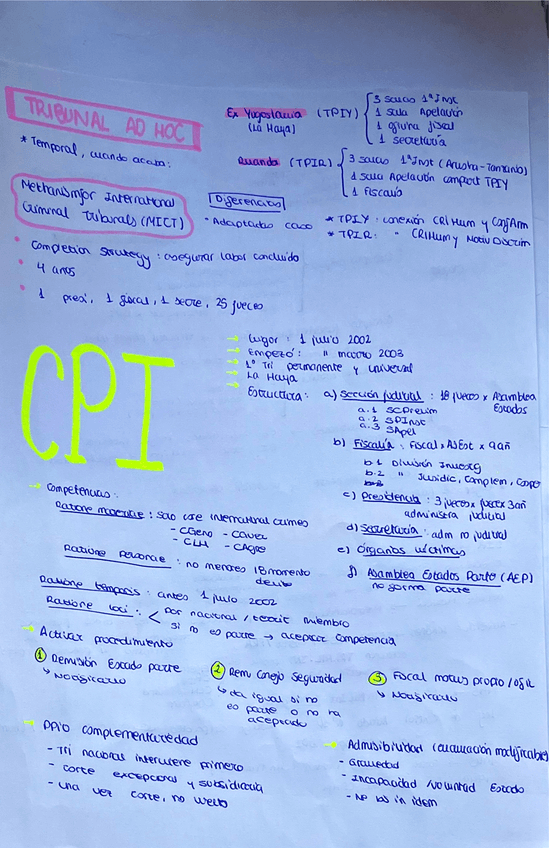 TRIBUNAL AD HOC
* Temporal, cuando acaba:
Ex Yugoslavia (TPIY)
(La Haya)
3 salas 1ª Inst
1 sala Apelación
1 oficina fiscal
1 secretaría
Ruanda (TPIR)
3 salas 1ª Inst (Arusha-Tanzania)
1 sala Apelación compart TPIY
1 Fiscalía
Mechanism for International
Criminal Tribunals (MICT)
Diferencias
· Adaptados caso
* TPIY: conexión CRIHum y ConfArm
* TPIR: " CRIHum y Motiv Discrim
· Completion strategy: asegurar labor concluida
· 4 años
· 1 presi, 1 fiscal, 1 secre, 25 jueces
CPI
→ Vigor: 1 julio 2002
→ Empezó: " marzo 2003
→ 1º Tri permanente y universal
→ La Haya
→ Estructura: a) Sección judicial: 18 jueces x Asamblea Estados
a.1 SCPrelim
a.2 SPInst
a.3 SApel
b) Fiscalía: Fiscal, AsEst x 9añ
b.1 División Investg
b.2 " Jurídic, Complem, Coope
c) Presidencia: 3 jueces x juez x 3añ
administra judicial
d) Secretaría: adm no judicial
e) Órganos víctimas
f) Asamblea Estados Parte (AEP)
no forma parte
→ Competencias:
Ratione materiae: solo core international crimes
- CGeno - CGuer
- CLH - CAgre
Ratione personae: no menores 18 momento
delito
Ratione temporis: antes 1 julio 2002
Ratione loci: < por nacional / territ miembro
si no es parte → aceptar competencia
→ Activar procedimiento
1 Remisión Estado parte
↳ Notificarlo
2 Rem Consejo Seguridad
↳ da igual si no
es parte o no ha
aceptado
3 Fiscal motus propio/ofic
↳ Notificarlo
→ Ppio complementariedad
- Tri nacional interviene primero
- Corte excepcional y subsidiaria
- una vez corte, no vuelta
→ Admisibilidad (calificación modificable)
- Gravedad
- Incapacidad /voluntad Estado
- Ne bis in idem